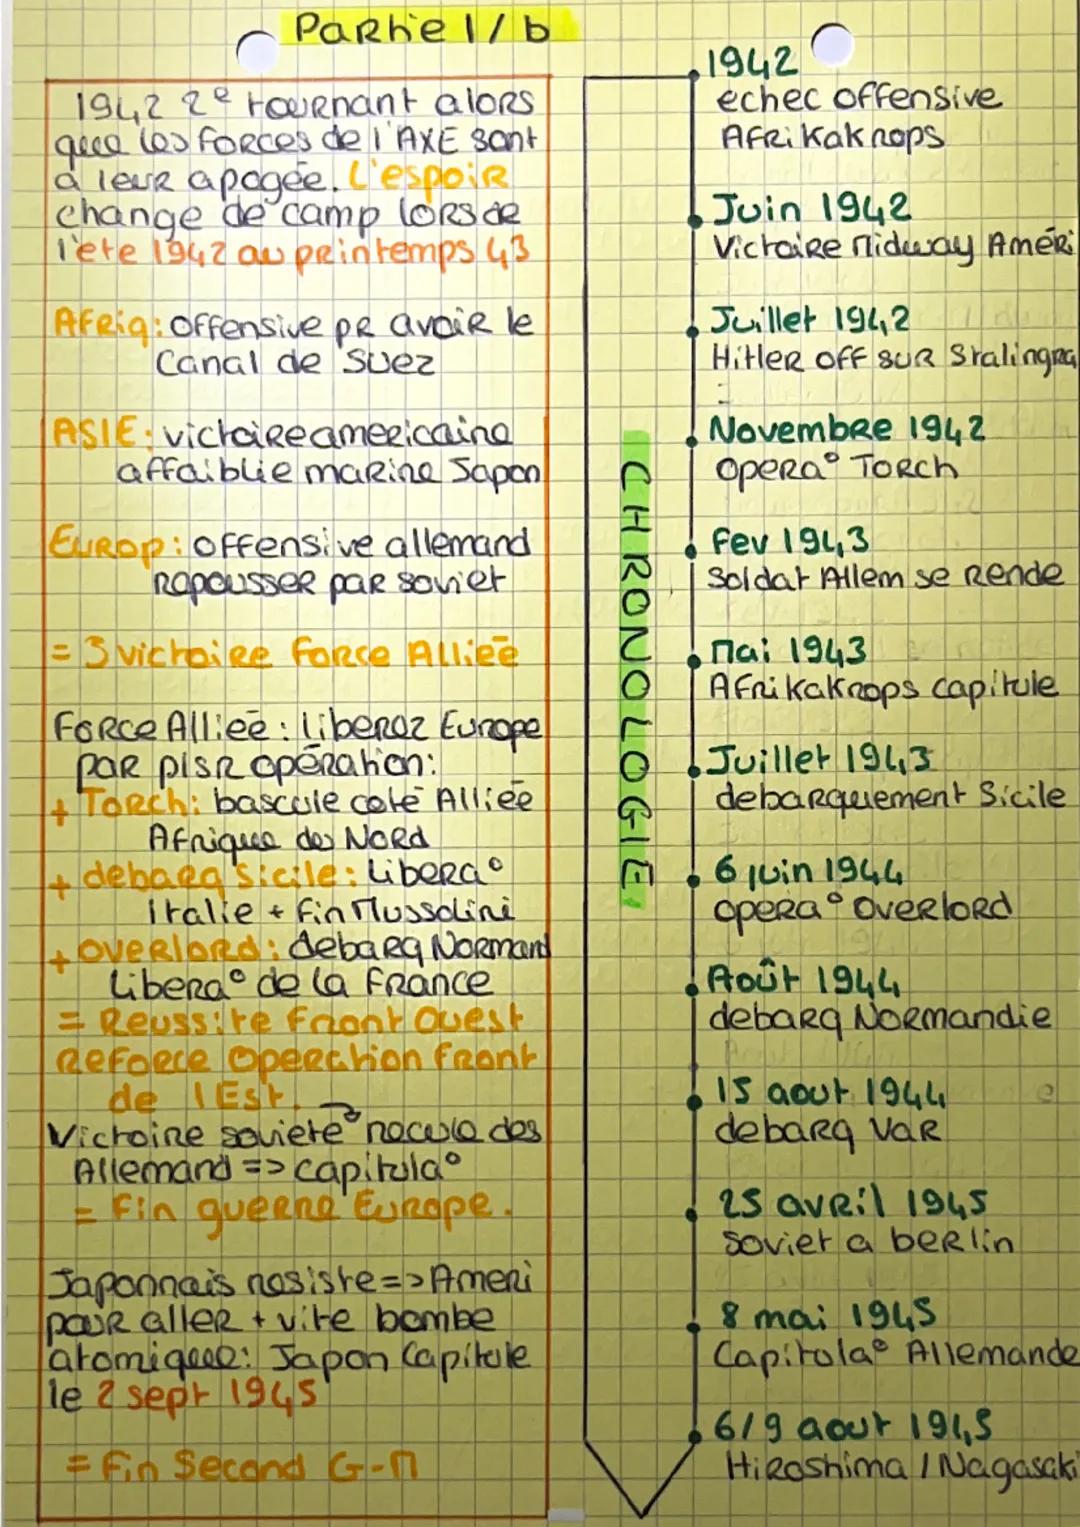 Partie 1/b
1942 2e tournant alors
que les forces de l'AXE sont
à leur apogée. L'espoir
change de camp lors de
l'été 1942 au printemps 43
Afriq: offensive pr avoir le
Canal de Suez
ASIE: victoire americaine
affaiblie marine Japon
Europ: offensive allemand
repousser par soviet
= 3 victoire force Alliée
Force Alliée: liberez Europe
par plsr opération:
+ Torch: bascule coté Alliée
Afrique de Nord
+ debarq Sicile: Libera°
Italie + fin Mussolini
+ Overlord: debarq Normand
Libera° de la France
= Reussite Front Ouest
Reforce Operation Front
de l'Est.
Victoire soviete recule des
Allemand => capitula°
= Fin guerre Europe.
Japonnais resiste => Ameri
pour aller + vite bombe
atomique: Japon Capitule
le 2 sept 1945
= Fin Second G-M
CHRONOLOGIE
1942
echec offensive
Afrikaknops
Juin 1942
Victoire Midway Améri
Juillet 1942
Hitler off sur Stalingra
Novembre 1942
opera° Torch
Fev 1943
Soldat Allem se rende
Mai 1943
Afrikaknops capitule
Juillet 1943
debarquement Sicile
6 juin 1944
opera° Overlord
Août 1944
debarq Normandie
15 aout 1944
debarq Var
25 avril 1945
soviet a berlin
8 mai 1945
Capitola° Allemande
6/9 aout 1945
Hiroshima / Nagasaki